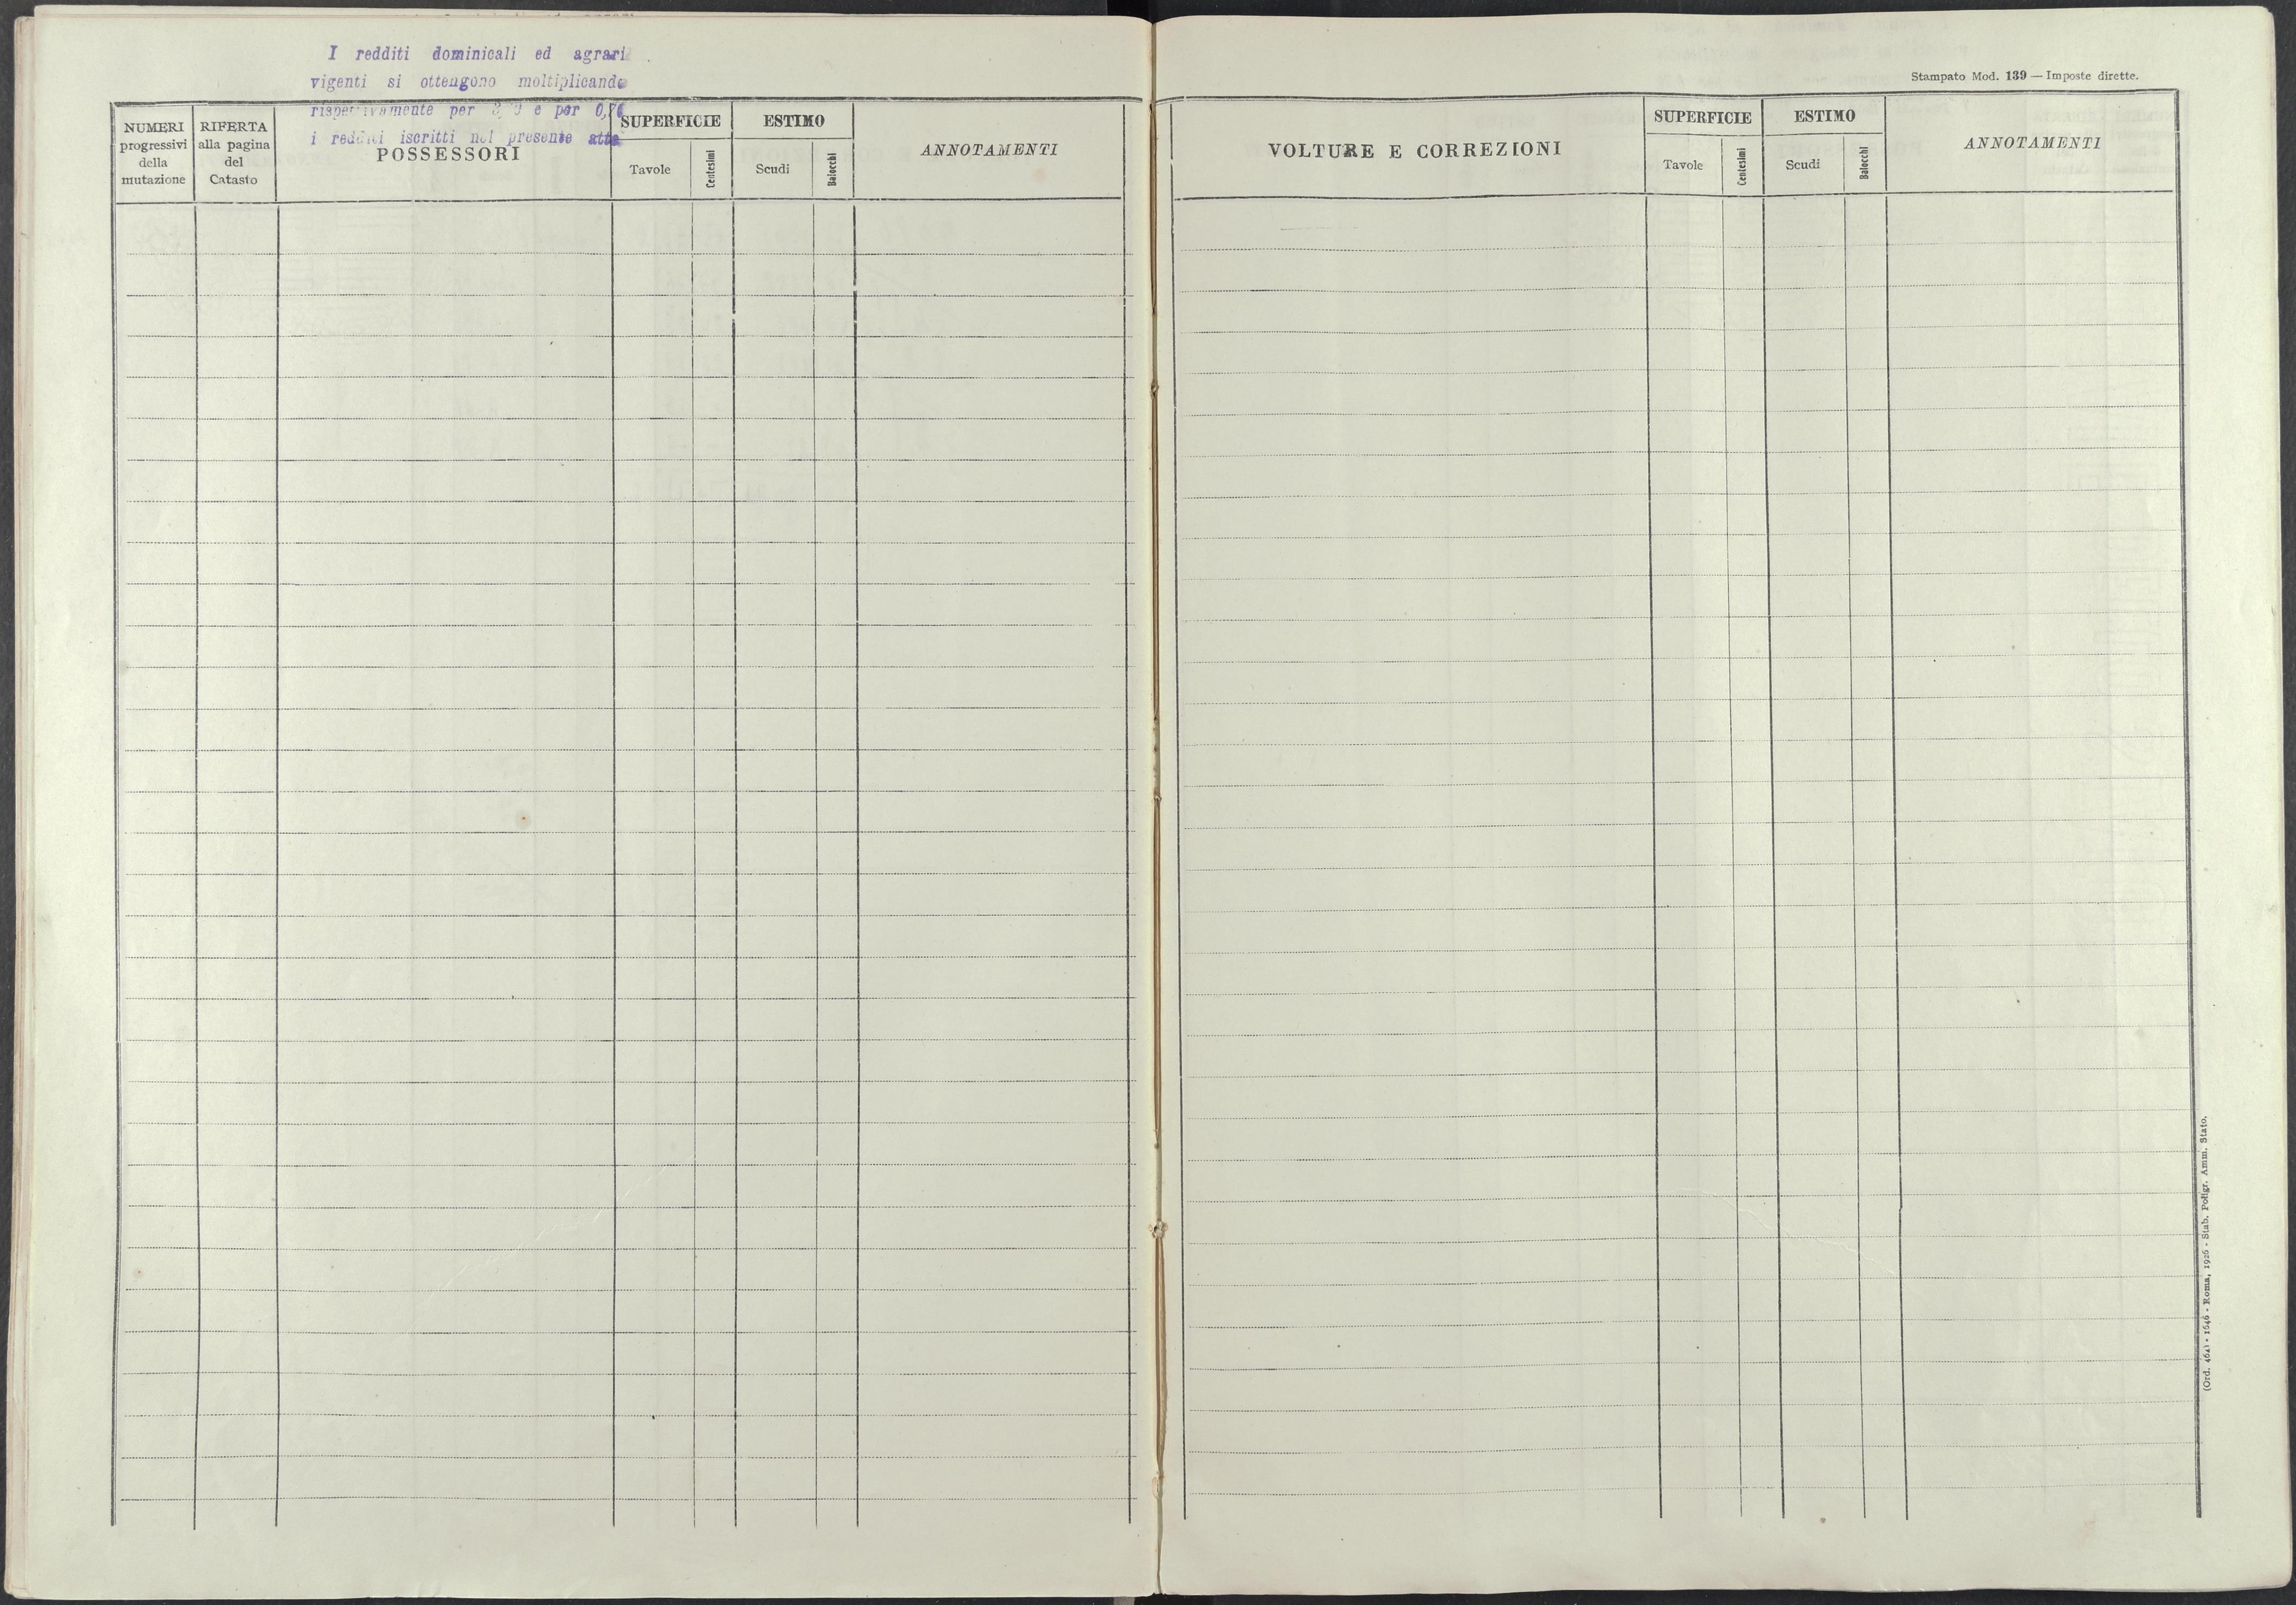 I redditi dominicali ed agrari
vigenti si ottengono moltiplicando
rispettivamente per e per
i redditi iscritti nel presente atto
NUMERI
progressivi
della
mutazione
RIFERTA
alla pagina
del
Catasto
POSSESSORI
SUPERFICIE
Tavole
Centesimi
ESTIMO
Scudi
Baiocchi
ANNOTAMENTI
Stampato Mod. 139 — Imposte dirette.
VOLTURE E CORREZIONI
SUPERFICIE
Tavole
Centesimi
ESTIMO
Scudi
Baiocchi
ANNOTAMENTI
(Ord. 1646 - Roma, 1926 - Stab. Poligr. Amm. Stato.